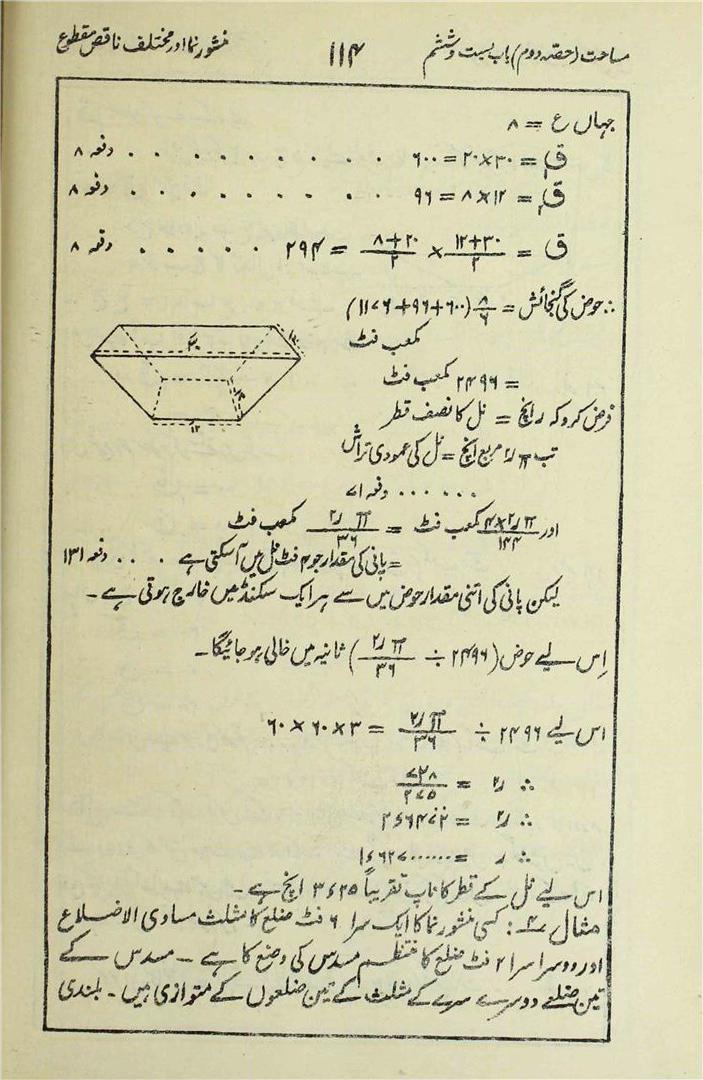 مساحت (حصہ دوم) باب بست وششم ۱۱۴ منشور نما اور مختلف ناقص مقطوع
جہاں ع = ۸
ق = ۳۰×۲۰ = ۶۰۰ . . . . . . . . . . دفعہ ۸
ق = ۱۲×۸ = ۹۶ . . . . . . . . . . دفعہ ۸
ق = (۱۲+۳۰)/۲ × (۸+۲۰)/۲ = ۲۹۴ . . . . . دفعہ ۸
∴ حوض کی گنجائش = ۸/۶ (۶۰۰+۹۶+۱۱۷۶)
مکعب فٹ
= ۲۴۹۶ مکعب فٹ
۳۰
۱۲
فرض کرو کہ ر انچ = نل کا نصف قطر
تب π ر۲ مربع انچ = نل کی عمودی تراش
. . . . . . دفعہ ۷۱
اور π ر۲×۴/۱۴۴ مکعب فٹ = π ر۲/۳۶ مکعب فٹ
= پانی کی مقدار جو ۴ فٹ نل میں آسکتی ہے . . . دفعہ ۱۳۱
لیکن پانی کی اتنی مقدار حوض میں سے ہر ایک سکنڈ میں خارج ہوتی ہے ۔
اِس لیے حوض (۲۴۹۶ ÷ π ر۲/۳۶) ثانیہ میں خالی ہو جائیگا ۔
اس لیے ۲۴۹۶ ÷ π ر۲/۳۶ = ۳×۶۰×۶۰
∴ ر۲ = ۷۲۸/۲۷۵
∴ ر۲ = ۲٫۶۴۷۲
∴ ر = ۱٫۶۲۷۰۰۰۰۰۰
اس لیے نل کے قطر کا ناپ تقریباً ۳٫۲۵ انچ ہے ۔
مثال ۴ : کسی منشور نما کا ایک سرا ۶ فٹ ضلع کا مثلث مساوی الاضلاع
اور دوسرا سرا ۲ فٹ ضلع کا منتظم مسدس کی وضع کا ہے ۔ مسدس کے
تین ضلعے دوسرے سرے کے مثلث کے تین ضلعوں کے متوازی ہیں ۔ بلندی